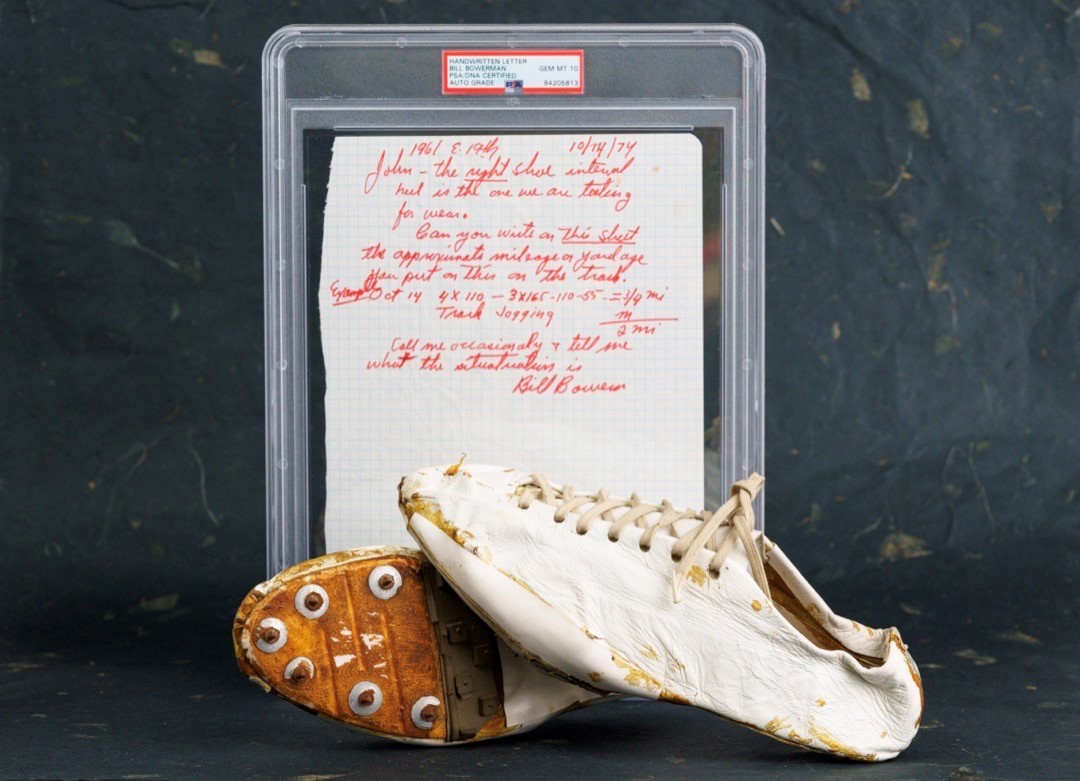 HANDWRITTEN LETTER
BILL BOWERMAN GEM MT 10
PSA/DNA CERTIFIED
AUTO GRADE PSA 84205813
1961 E. 19th 10/14/74
John - the right shoe internal
heel is the one we are testing
for wear.
Can you write on this sheet
the approximate mileage or yardage
you put on this on the track.
Example Oct 14 4x110 - 3x165-110-55 = 3/4 mi
Track Jogging
2 mi
Call me occasionaly & tell me
what the situatuation is
Bill Bowerm